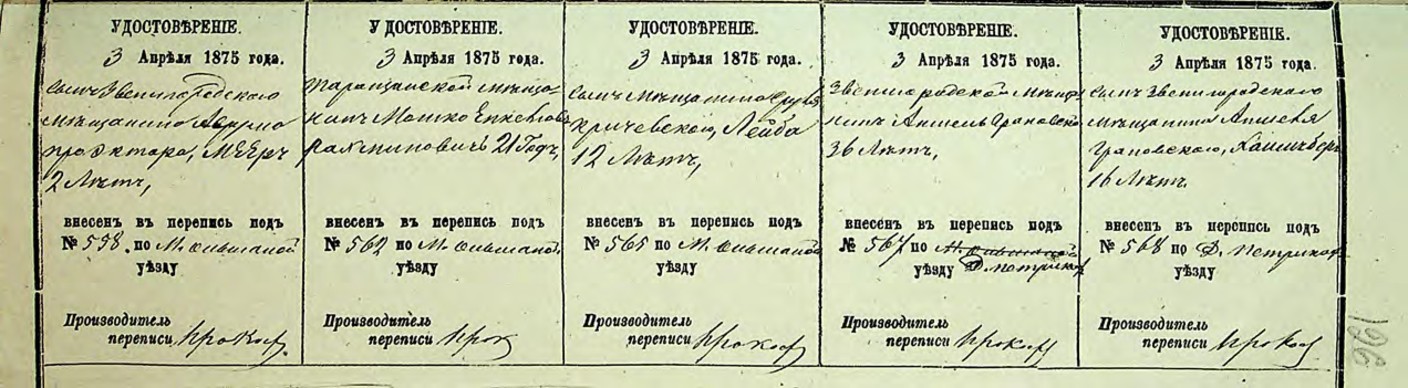 УДОСТОВѢРЕНІЕ.
3 Апрѣля 1875 года.
Сынъ Звенигородскаго
мѣщанина Аврумо
Прозктора, Мееръ
2 Лѣтъ,
внесенъ въ перепись подъ
№ 558. по М. Ольшаной
уѣзду
Производитель
переписи
УДОСТОВѢРЕНІЕ.
3 Апрѣля 1875 года.
Таращанской мѣща-
нинъ Мошко
Рахминовичъ 21 Годъ,
внесенъ въ перепись подъ
№ 562 по М. Ольшаной
уѣзду
Производитель
переписи
УДОСТОВѢРЕНІЕ.
3 Апрѣля 1875 года.
Сынъ мѣщанина
Кричевскаго, Лейба
12 Лѣтъ,
внесенъ въ перепись подъ
№ 565 по М. Ольшаной
уѣзду
Производитель
переписи
УДОСТОВѢРЕНІЕ.
3 Апрѣля 1875 года.
Звенигородской мѣща-
нинъ Аншель Грановской
36 Лѣтъ,
внесенъ въ перепись подъ
№ 567 по М. Ольшаной
уѣзду Д. Петрико
Производитель
переписи
УДОСТОВѢРЕНІЕ.
3 Апрѣля 1875 года.
Сынъ Звенигородскаго
мѣщанина Аншеля
Грановскаго,
16 Лѣтъ.
внесенъ въ перепись подъ
№ 568 по Д. Петрико
уѣзду
Производитель
переписи